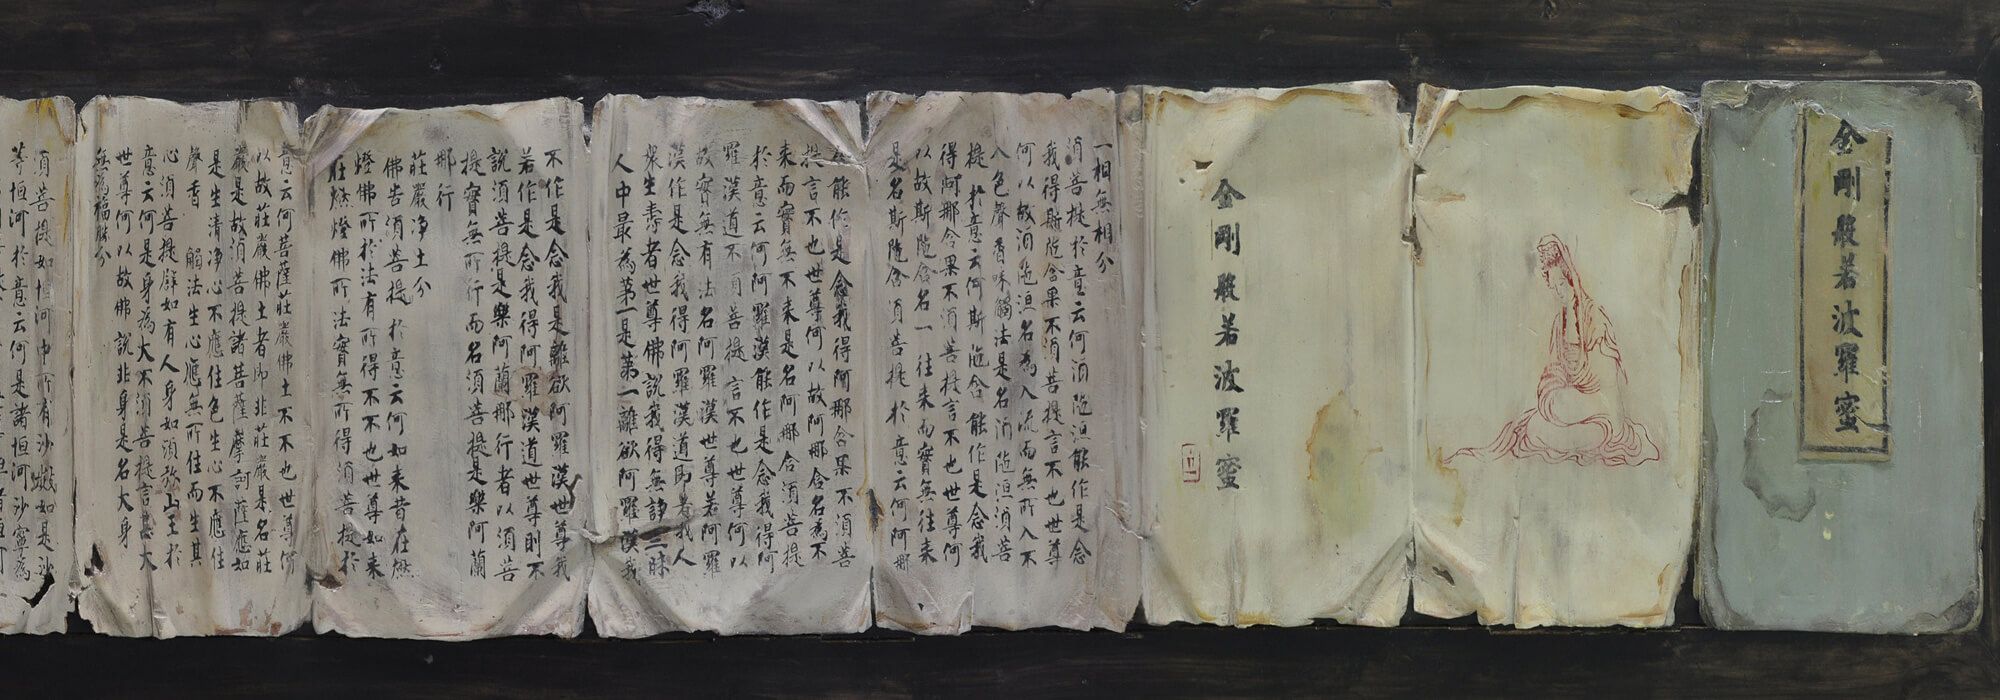 金剛般若波羅蜜
金剛般若波羅蜜
一相無相分
須菩提於意云何須陀洹能作是念
我得須陀洹果不須菩提言不也世尊
何以故須陀洹名為入流而無所入不
入色聲香味觸法是名須陀洹須菩
提於意云何斯陀含能作是念我
得阿那含果不須菩提言不也世尊何
以故斯陀含名一往來而實無往來
是名斯陀含須菩提於意云何阿那
含能作是念我得阿那含果不須菩
提言不也世尊何以故阿那含名為不
來而實無不來是名阿那含須菩提
於意云何阿羅漢能作是念我得阿
羅漢道不須菩提言不也世尊何以
故實無有法名阿羅漢世尊若阿羅
漢作是念我得阿羅漢道即著我人
眾生壽者世尊佛說我得無諍三昧
人中最為第一是第一離欲阿羅漢我
不作是念我是離欲阿羅漢世尊我
若作是念我得阿羅漢道世尊則不
說須菩提是樂阿蘭那行者以須菩
提實無所行而名須菩提是樂阿蘭
那行
莊嚴淨土分
佛告須菩提於意云何如來昔在燃
燈佛所於法有所得不不也世尊如來
在燃燈佛所法實無所得須菩提於
意云何菩薩莊嚴佛土不不也世尊何
以故莊嚴佛土者即非莊嚴是名莊
嚴是故須菩提諸菩薩摩訶薩應如
是生清淨心不應住色生心不應住
聲香 觸法生心應無所住而生其
心須菩提譬如有人身如須彌山王於
意云何是身為大不須菩提言甚大
世尊何以故佛說非身是名大身
無為福勝分
須菩提如恒河中所有沙數如是沙
等恒河於意云何是諸恒河沙寧為